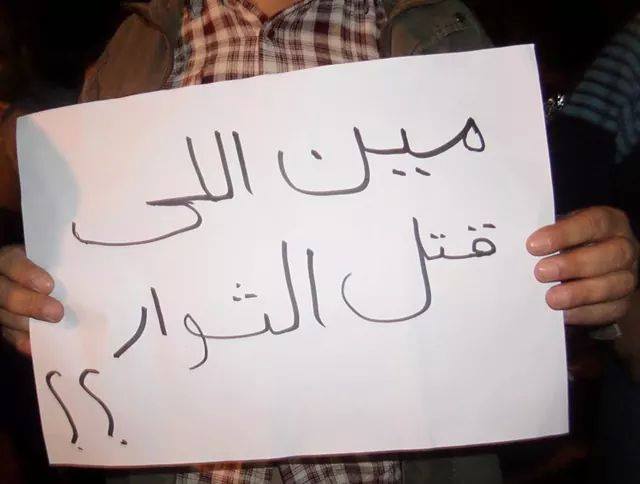 مين اللى
قتل الثوار
؟؟